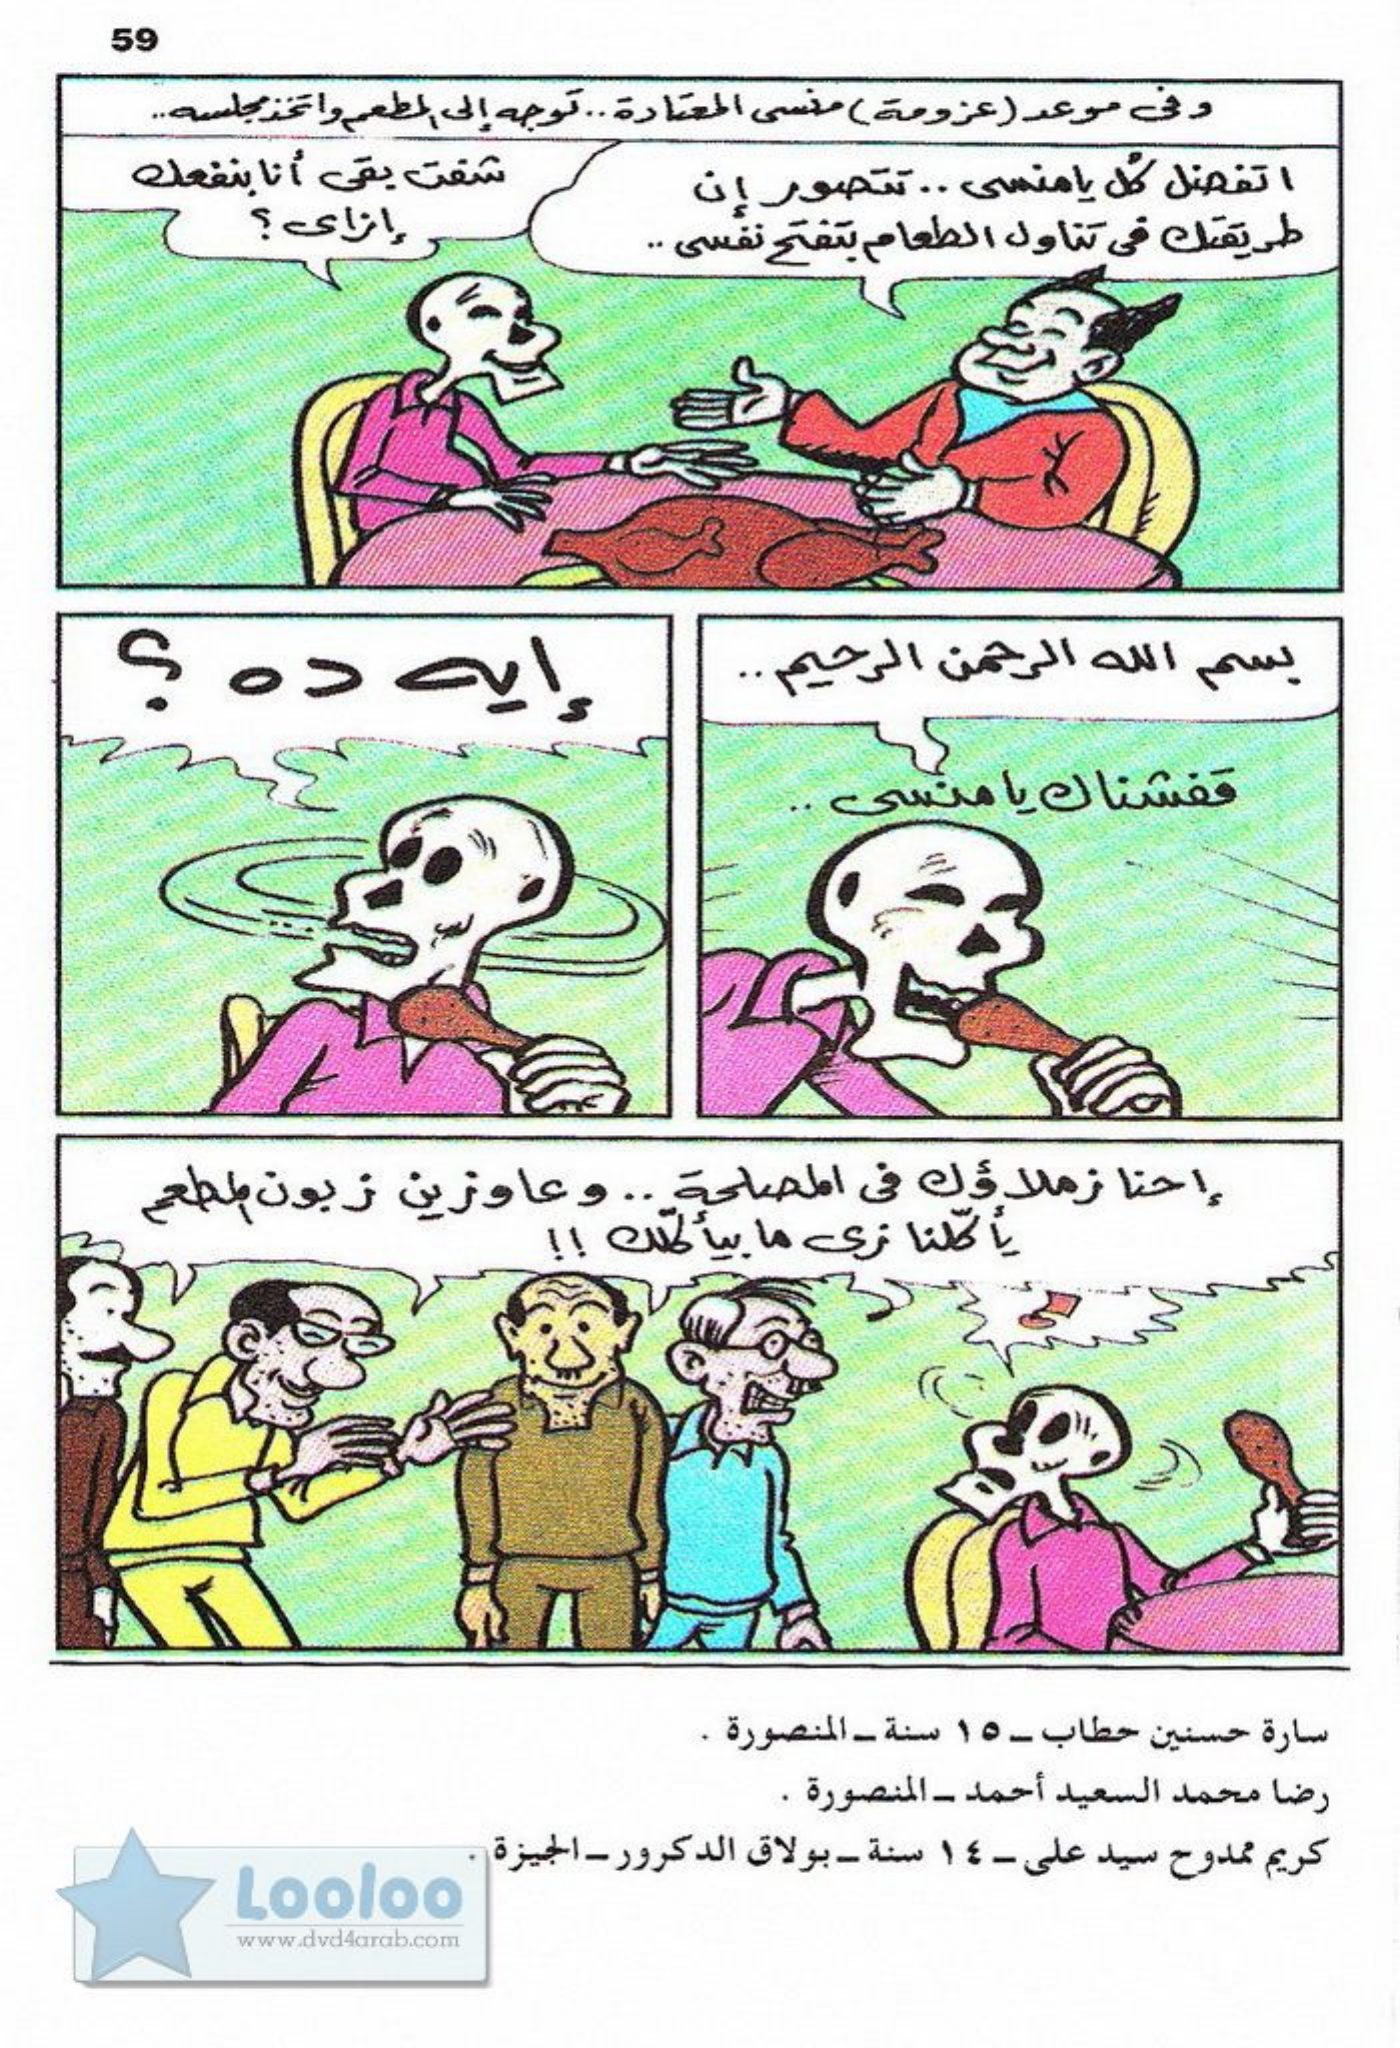 59
وفى موعد (عزومة) منسى المعتادة.. توجه إلى المطعم واتخذ مجلسه..
اتفضل كُل يا منسى.. تتصور إن
طريقتك فى تناول الطعام بتفتح نفسى..
شفت بقى أنا بنفعك
إزاى ؟
بسم الله الرحمن الرحيم..
قفشناك يا منسى..
إيه ده ؟
إحنا زملاؤك فى المصلحة.. وعاوزين زبون المطعم
يأكّلنا زى ما بيأكّلك !!
سارة حسنين حطاب ــ ١٥ سنة ــ المنصورة .
رضا محمد السعيد أحمد ــ المنصورة .
كريم ممدوح سيد على ــ ١٤ سنة ــ بولاق الدكرور ــ الجيزة .
Looloo
www.dvd4arab.com